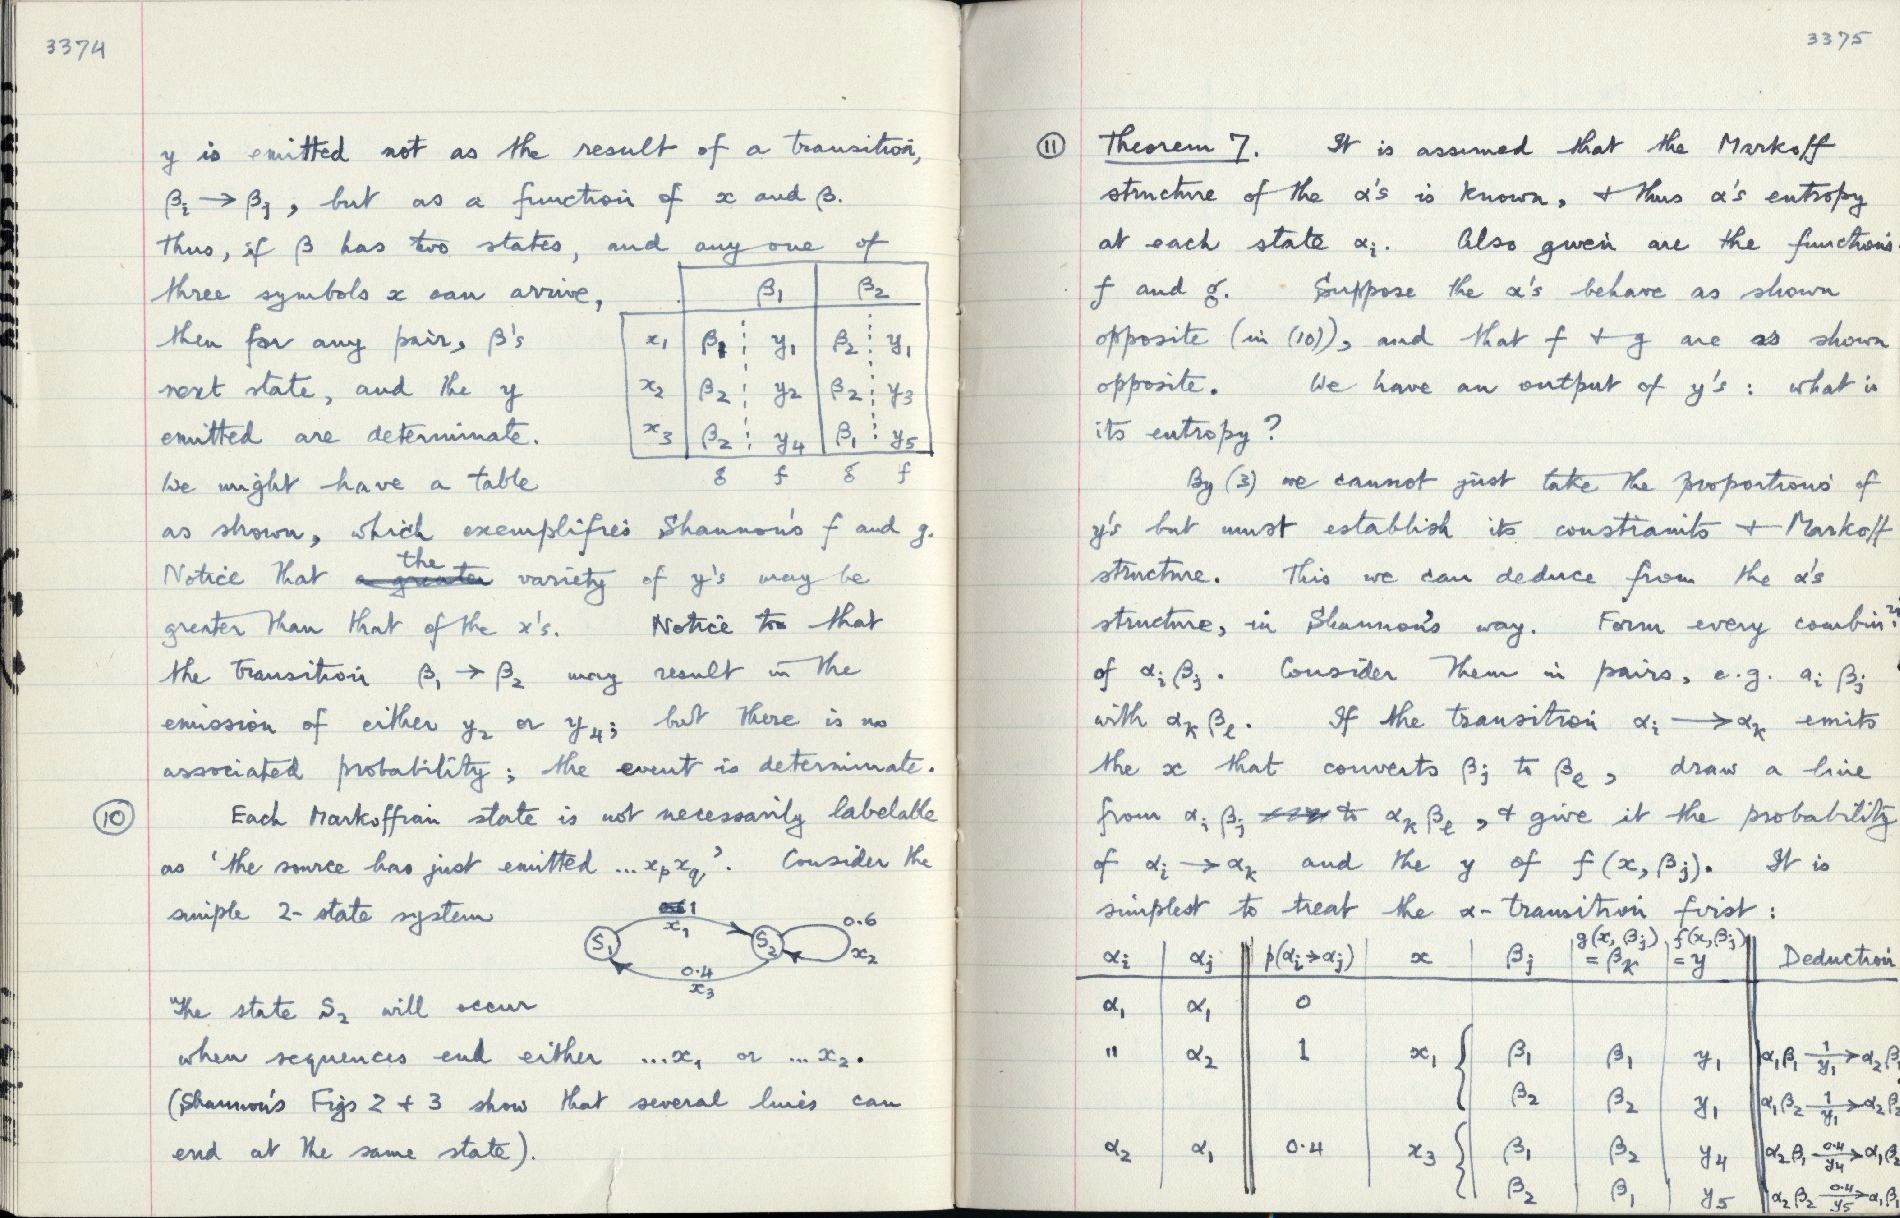 3374
y is emitted not as the result of a transition,
βi → βj, but as a function of x and β.
Thus, if β has two states, and any one of
three symbols x can arrive,
then for any pair, β's
next state, and the y
emitted are determinate.
We might have a table
β1 β2
x1 β1 y1 β2 y1
x2 β2 y2 β2 y3
x3 β2 y4 β1 y5
g f g f
as shown, which exemplifies Shannon's f and g.
Notice that the variety of y's may be
greater than that of the x's. Notice that
the transition β1 → β2 may result in the
emission of either y2 or y4; but there is no
associated probability; the event is determinate.
⑩ Each Markoffian state is not necessarily labelable
as 'the source has just emitted ... xp xq'. Consider the
simple 2-state system
1
x1
S1 S2
0.6
x2
0.4
x3
The state S2 will occur
when sequences end either ...x1 or ...x2.
(Shannon's Figs 2 + 3 show that several lines can
end at the same state).
3375
⑪ Theorem 7. It is assumed that the Markoff
structure of the α's is known, + thus α's entropy
at each state αi. Also given are the functions
f and g. Suppose the α's behave as shown
opposite (in (10)), and that f + g are as shown
opposite. We have an output of y's: what is
its entropy?
By (3) we cannot just take the proportions of
y's but must establish its constraints + Markoff
structure. This we can deduce from the α's
structure, in Shannon's way. Form every combin.n
of αi βj. Consider them in pairs, e.g. ai βj
with αk βl. If the transition αi → αk emits
the x that converts βj to βl, draw a line
from αi βj to αk βl, + give it the probability
of αi → αk and the y of f(x, βj). It is
simplest to treat the α-transition first:
αi αj p(αi→αj) x βj g(x, βj) = βk f(x, βj) = y Deduction
α1 α1 0
" α2 1 x1 { β1 β1 y1 α1β1 1/y1 → α2β1
β2 β2 y1 α1β2 1/y1 → α2β2
α2 α1 0.4 x3 { β1 β2 y4 α2β1 0.4/y4 → α1β2
β2 β1 y5 α2β2 0.4/y5 → α1β1